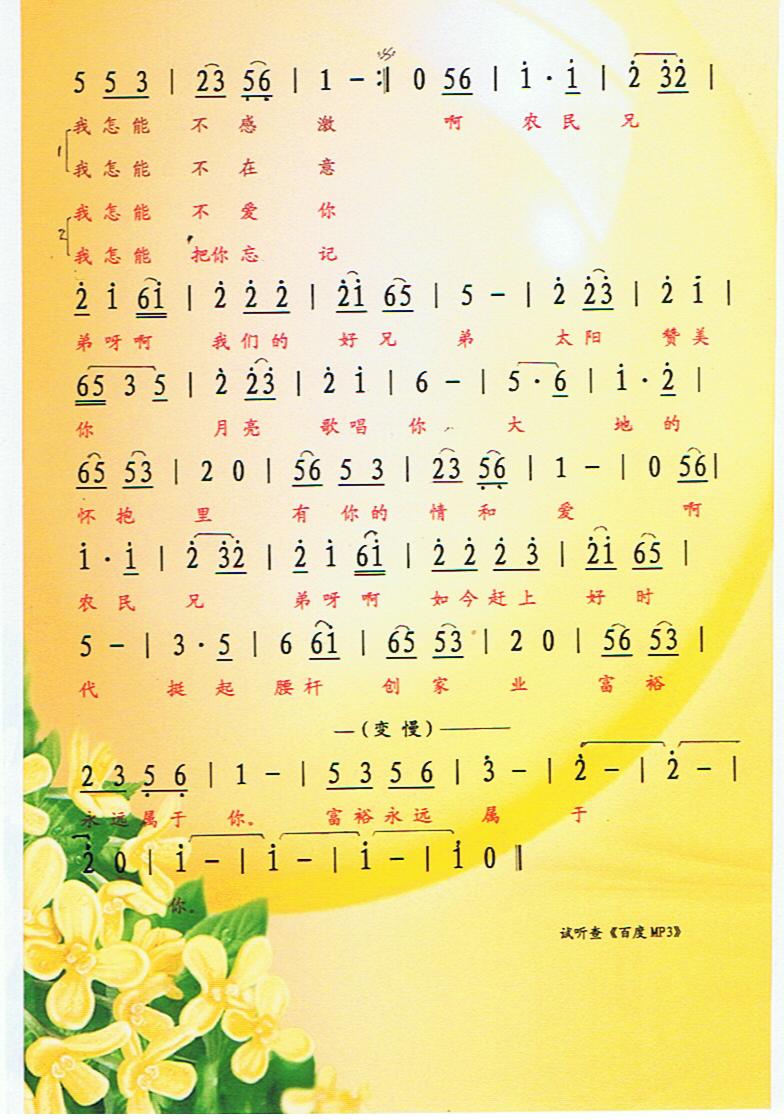 5 5 3 | 2 3 5 6 | 1 - :‖ 0 5 6 | i · i | 2 3 2 |
我怎能 不感激 啊 农民兄
1 我怎能 不在意
我怎能 不爱你
2 我怎能 把你忘记
2 i 6 i | 2 2 2 | 2 i 6 5 | 5 - | 2 2 3 | 2 i |
弟呀啊 我们的 好兄 弟 太阳 赞美
6 5 3 5 | 2 2 3 | 2 i | 6 - | 5 · 6 | i · 2 |
你 月亮 歌唱 你 大 地的
6 5 5 3 | 2 0 | 5 6 5 3 | 2 3 5 6 | 1 - | 0 5 6 |
怀抱 里 有你的 情和 爱 啊
i · i | 2 3 2 | 2 i 6 i | 2 2 2 3 | 2 i 6 5 |
农民 兄 弟呀啊 如今赶上 好时
5 - | 3 · 5 | 6 6 i | 6 5 5 3 | 2 0 | 5 6 5 3 |
代 挺起 腰杆 创家 业 富裕
—(变慢)———
2 3 5 6 | 1 - | 5 3 5 6 | 3 - | 2 - | 2 - |
永远属于 你。 富裕永远 属 于
2 0 | i - | i - | i - | i 0 ‖
你。
试听查《百度MP3》